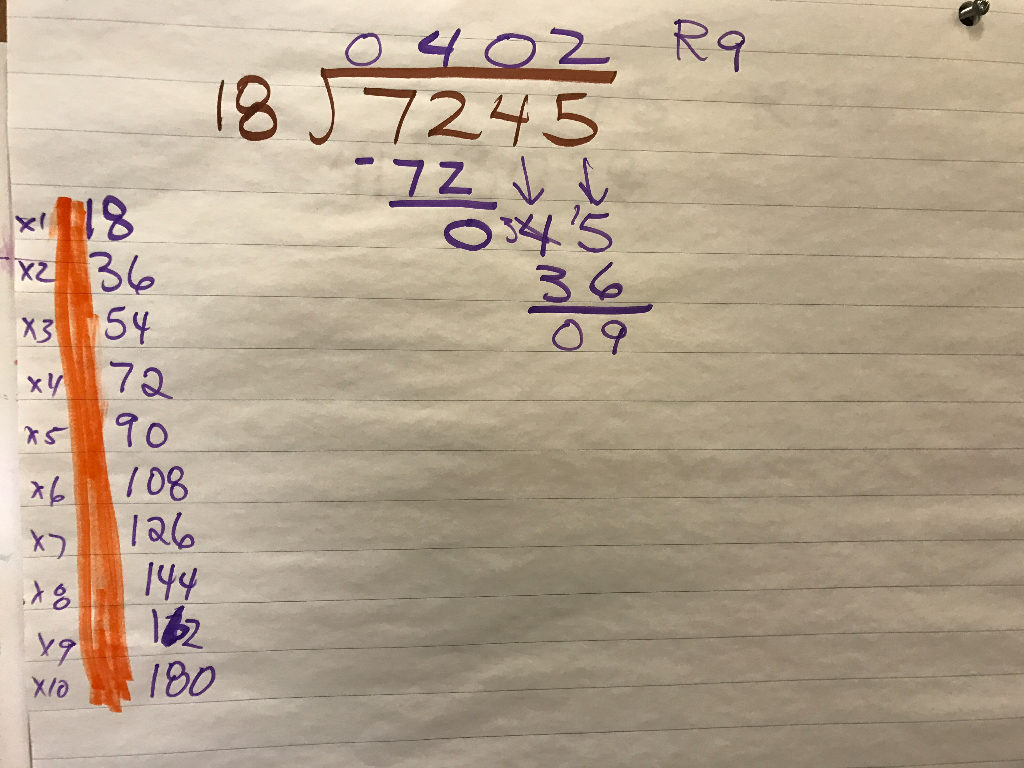 0402 R9
18 7245
-72
0 3 4 1 5
x1 18
36
x2 36
09
x3 54
x4 72
x5 90
x6 108
x7 126
x8 144
x9 162
x10 180